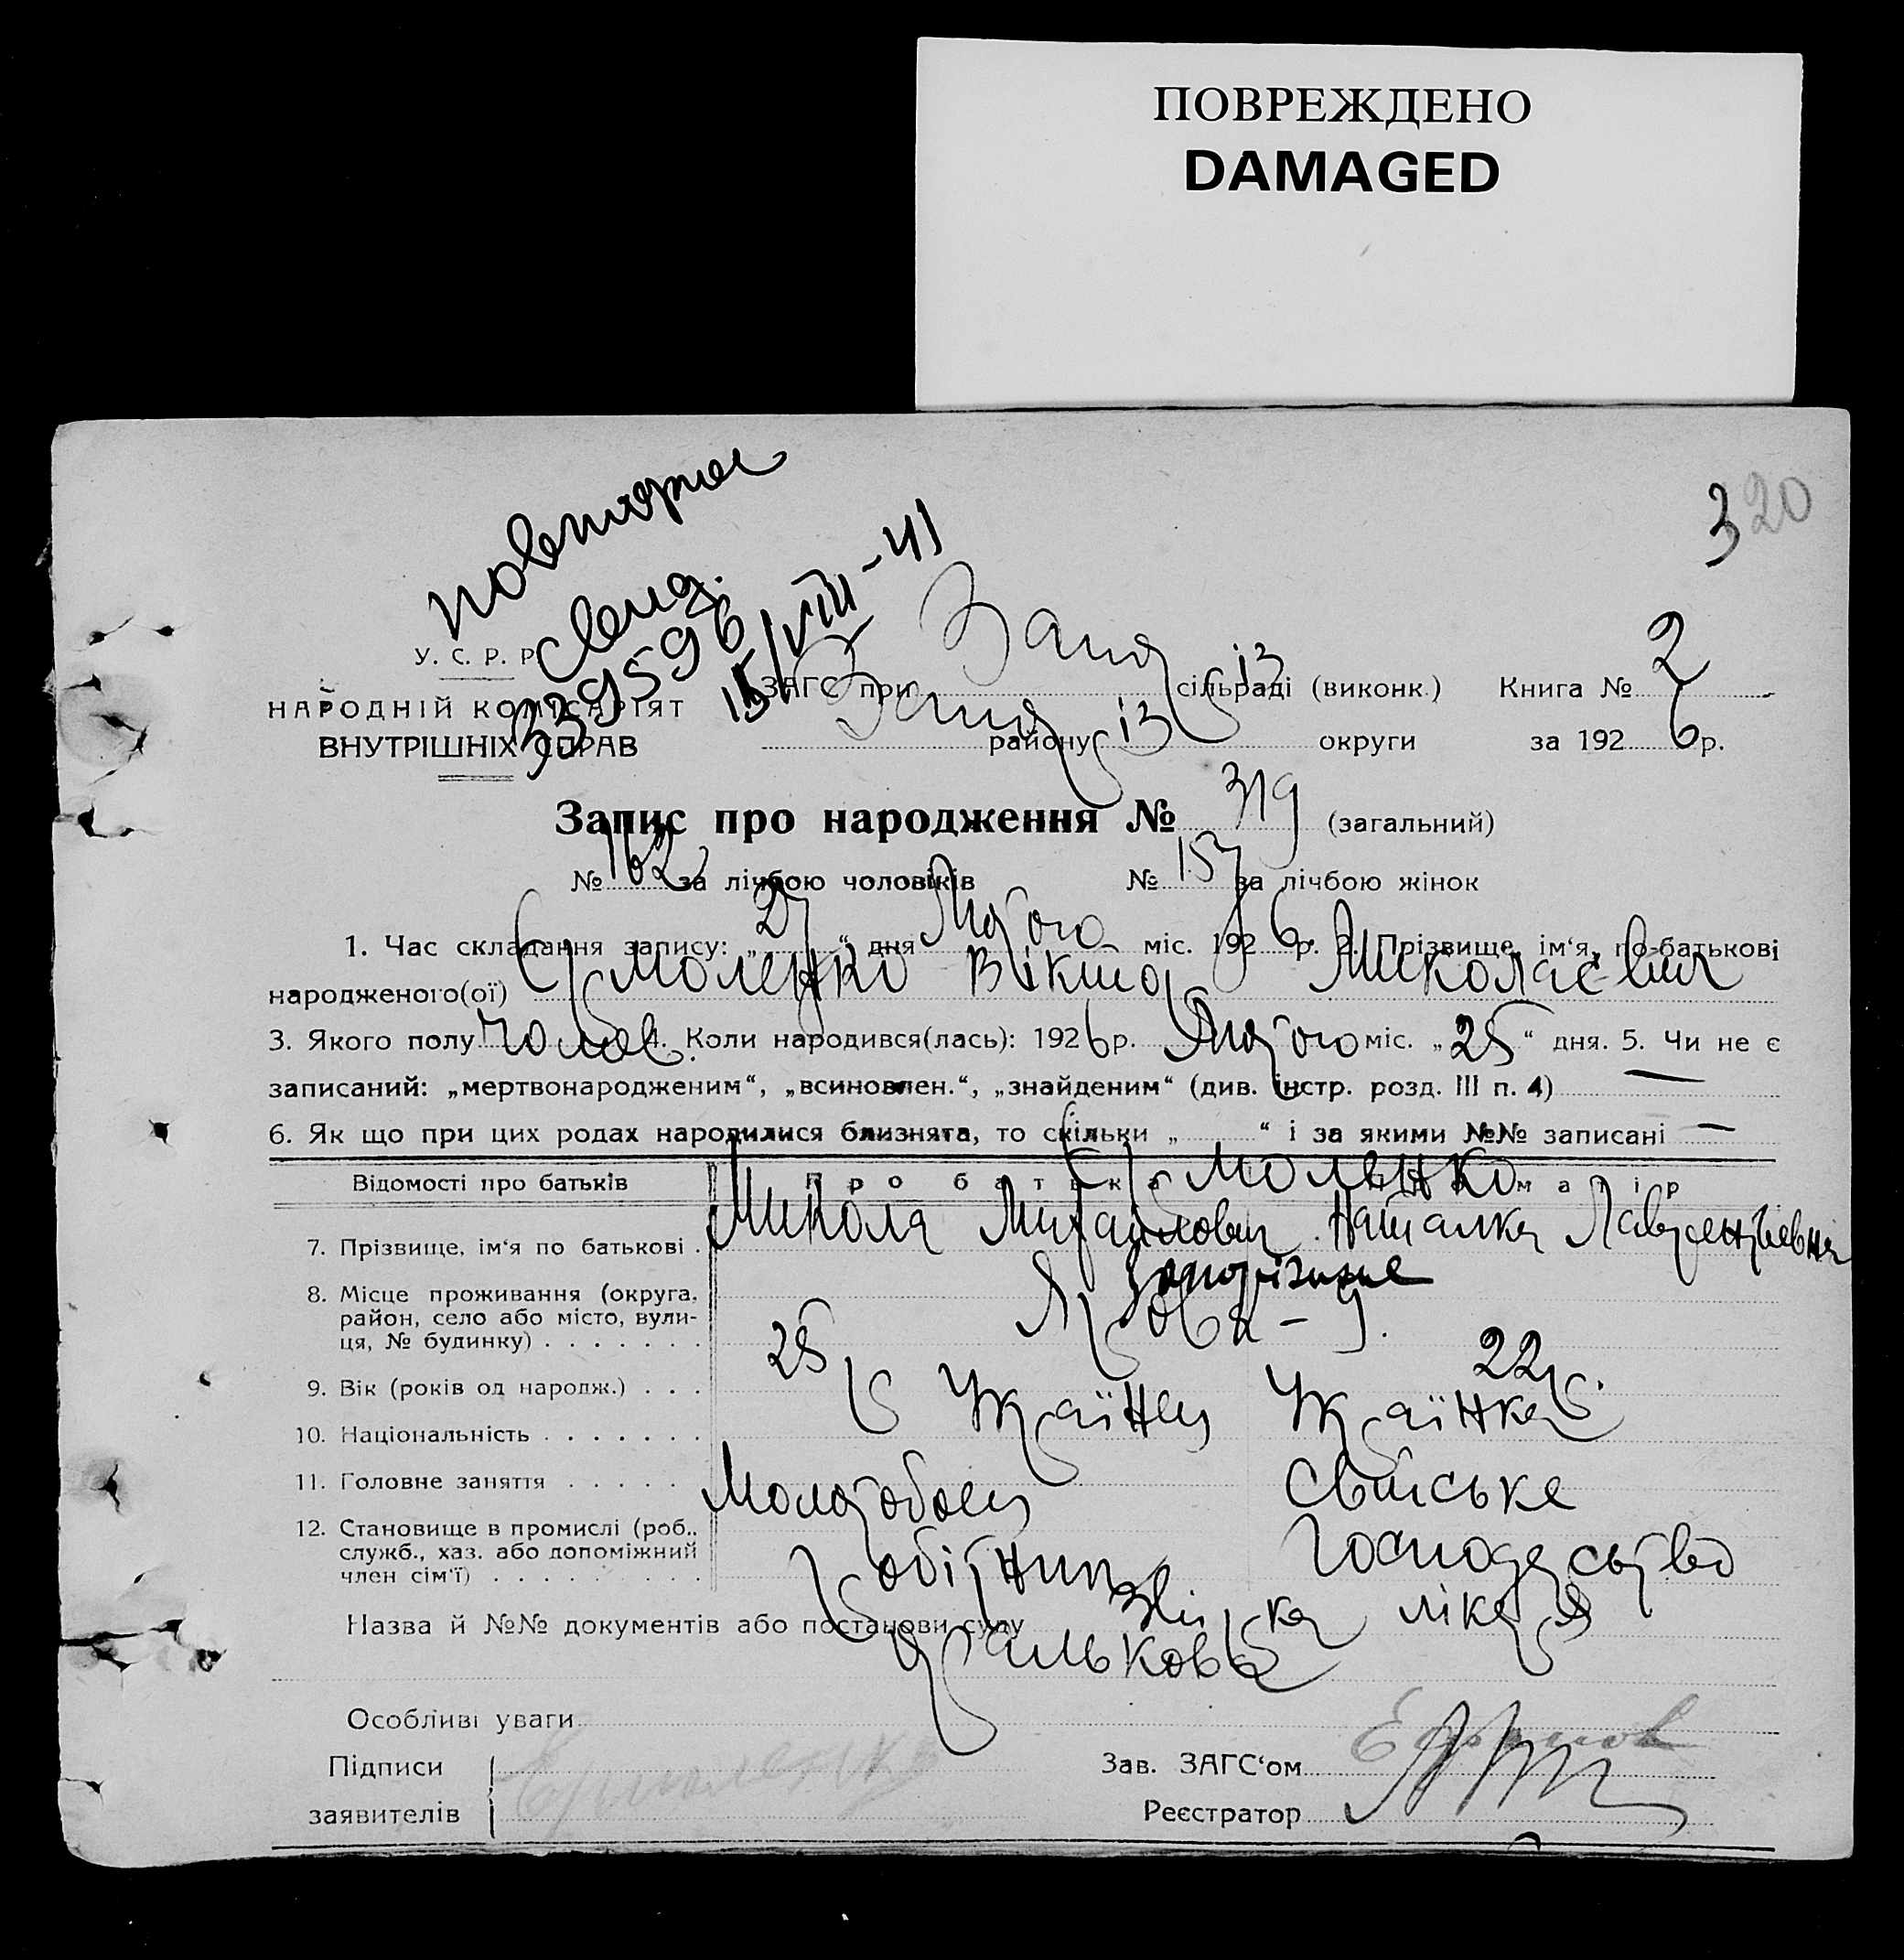 ПОВРЕЖДЕНО
DAMAGED
320
повторное
свид.
339596
15/VIII-41
У. С. Р. Р.
НАРОДНІЙ КОМІСАРІЯТ
ВНУТРІШНІХ СПРАВ
ЗАГС при Запоріз сільраді (виконк.) Книга № 2
Запоріз району округи за 1926 р.
Запис про народження № 319 (загальний)
№ 162 за лічбою чоловіків № 157 за лічбою жінок
1. Час складання запису: „27“ дня Лютого міс. 1926 р. 2. Прізвище, ім‘я, по-батькові
народженого(ої) Єрмоленко Віктор Миколаєвич
3. Якого полу чолов. 4. Коли народився(лась): 1926 р. Лютого міс. „25“ дня. 5. Чи не є
записаний: „мертвонародженим“, „всиновлен.“, „знайденим“ (див. інстр. розд. III п. 4) —
6. Як що при цих родах народилися близнята, то скільки „ “ і за якими №№ записані —
Відомості про батьків Про батька Про матір
Єрмоленко
7. Прізвище, ім‘я по батькові . Микола Михайлович Наталка Лаврентьевна
8. Місце проживання (округа, Запоріжжє
район, село або місто, вули-
ця, № будинку) . . . . . . . 9.
9. Вік (років од народж.) . . . 25 р. 22 р.
10. Національність . . . . . . . Українец Українка
11. Головне заняття . . . . . Молотобоец Свійське
12. Становище в промислі (роб., Робітник Господарство
служб., хаз. або допоміжний
член сім‘ї) . . . . . . . . .
Назва й №№ документів або постанови суду лікаря
Особливі уваги
Підписи Зав. ЗАГС‘ом
заявителів Єрмоленко Реєстратор